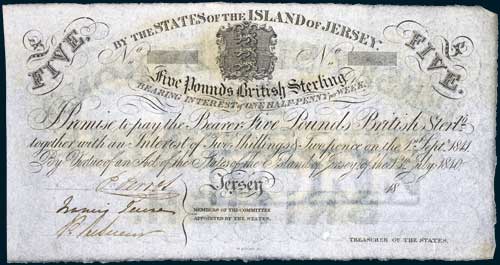 BY THE STATES OF THE ISLAND OF JERSEY.
FIVE.
FIVE.
No
No
Five Pounds British Sterling
BEARING INTEREST of ONE HALF-PENNY per WEEK.
I Promise to pay the Bearer Five Pounds British Sterlg
together with an Interest of Two Shillings & Two pence on the 1st Septr. 1841
By Virtue of an Act of the States of the Island of Jersey, of the July 1840
Jersey 18
MEMBERS OF THE COMMITTEE
APPOINTED BY THE STATES.
TREASURER OF THE STATES.